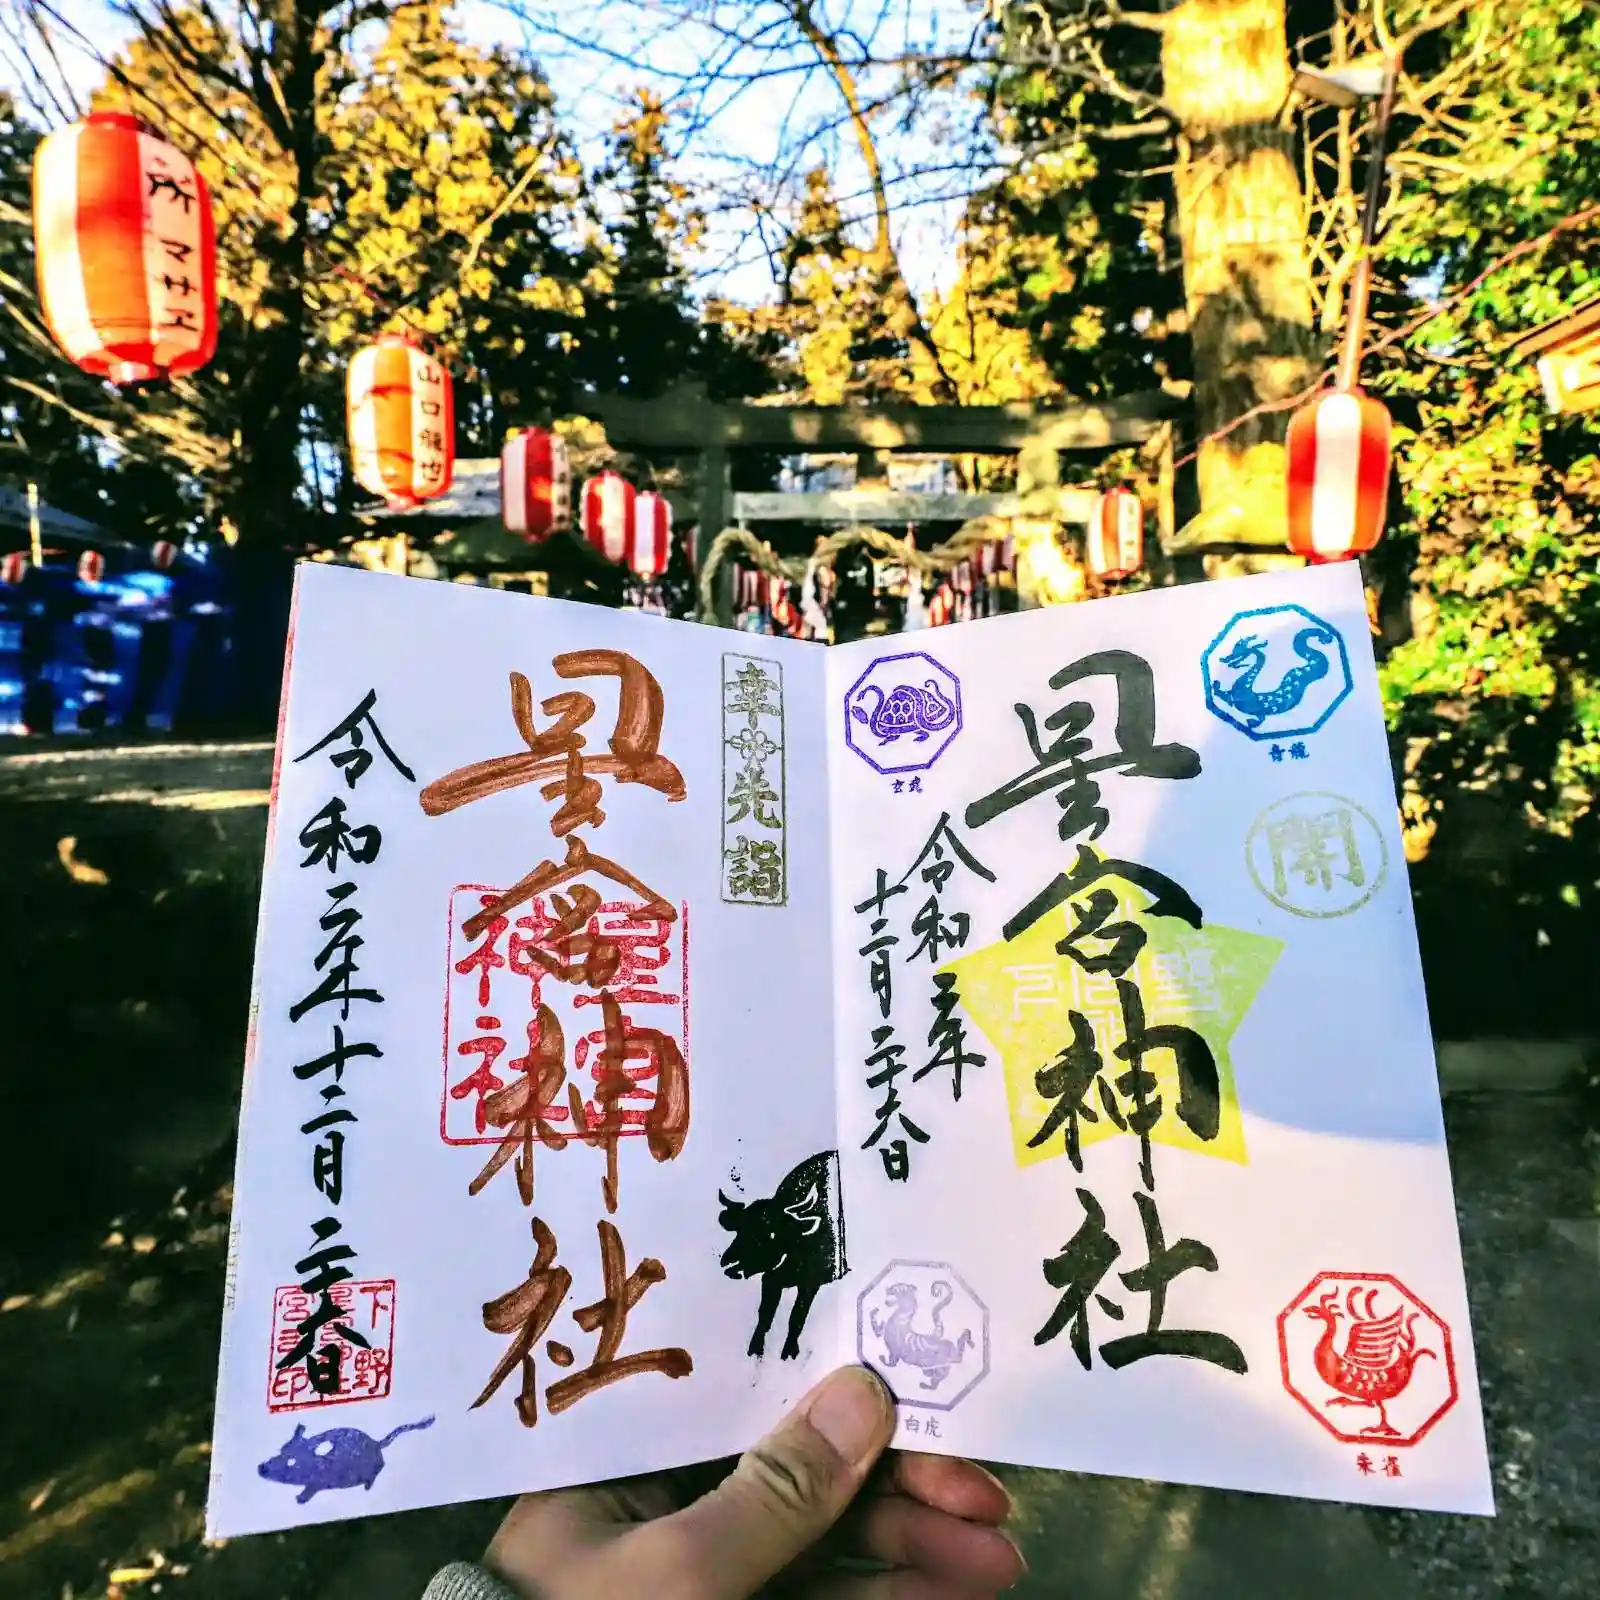 所 マサエ
山口龍也
青龍
開
星宮神社
玄武
令和二年
十二月二十六日
白虎
朱雀
幸先詣
星宮神社
星宮神社
令和二年十二月二十六日
下野
星宮神社
宮司印